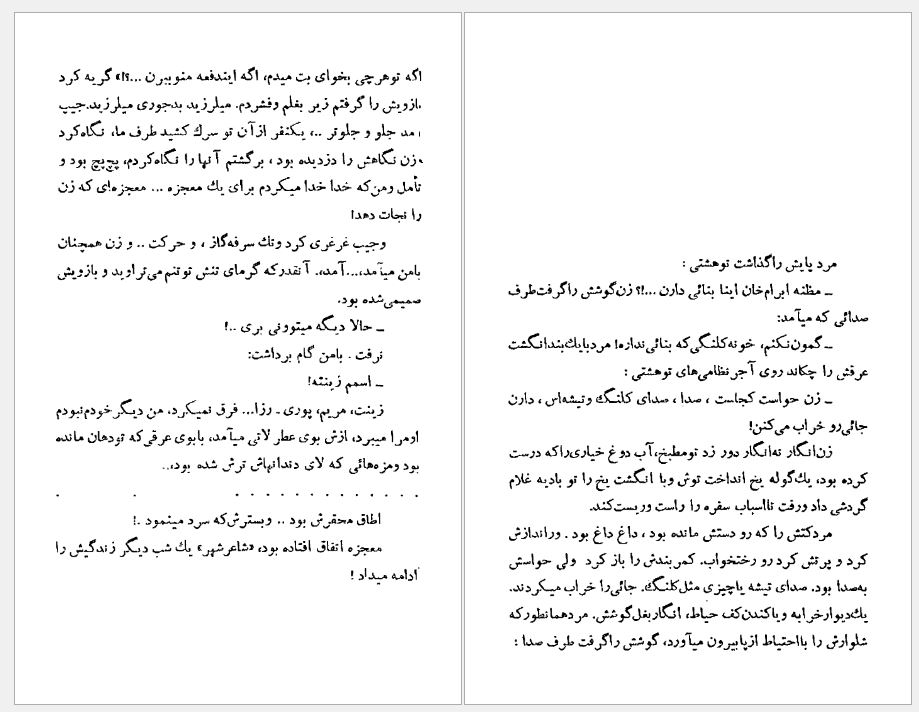 مرد پایش راگذاشت توهشتی :
ــ مظنه ابرام‌خان اینا بنائی دارن ...!؟ زن‌گوشش راگرفت‌طرف
صدائی که میآمد:
ــ گمون‌نکنم، خونه‌کلنگی‌که بنائی‌نداره! مردبایك‌بندانگشت
عرقش را چکاند روی آجرنظامی‌های توهشتی :
ــ زن حواست کجاست ، صدا ، صدای کلنگ وتیشه‌اس ، دارن
جائی‌رو خراب می‌کنن!
زن‌انگار نه‌انگار دور زد تومطبخ،آب دوغ خیاری‌راکه درست
کرده بود، یك‌گوله یخ انداخت توش وبا انگشت یخ را تو بادیه غلام
گردشی داد ورفت تااسباب سفره را راست وریست‌کند.
مردکتش را که رو دستش مانده بود ، داغ داغ بود . وراندازش
کرد و پرتش کرد رو رختخواب. کمربندش را باز کرد ولی حواسش
به‌صدا بود. صدای تیشه یاچیزی مثل‌کلنگ. جائی‌را خراب میکردند.
یك‌دیوارخرابه ویاکندن‌کف حیاط، انگاربغل‌گوشش. مردهمانطورکه
شلوارش را بااحتیاط ازپابیرون میآورد، گوشش راگرفت طرف صدا :
اگه توهرچی بخوای بت میدم، اگه ایندفعه منوببرن ...؟!» گریه کرد
بازویش را گرفتم زیر بغلم وفشردم. میلرزید بدجوری میلرزید.جیپ
آمد جلو و جلوتر ..، یکنفر ازآن تو سرك کشید طرف ما، نگاه‌کرد
.زن نگاهش را دزدیده بود ، برگشتم آنها را نگاه‌کردم، پچ‌پچ بود و
تأمل ومن‌که خدا خدا میکردم برای یك معجزه ... معجزه‌ای که زن
را نجات دهد!
وجیپ غرغری کرد وتك سرفه‌گاز ، و حرکت .. و زن همچنان
بامن میآمد،...آمد،. آنقدرکه گرمای تنش توتنم می‌تراوید و بازویش
صمیمی‌شده بود.
ــ حالا دیگه میتوونی بری ..!
نرفت . بامن گام برداشت:
ــ اسمم زینته!
زینت، مریم، پوری ـ رزا... فرق نمیکرد، من دیگرخودم‌نبودم
اومرا میبرد، ازش بوی عطر لاتی میآمد، بابوی عرقی‌که تودهان مانده
بود ومزه‌هائی که لای دندانهاش ترش شده بود،..
. . . . . . . . . . . . . . .
اطاق محقرش بود .. وبسترش‌که سرد مینمود .!
معجزه اتفاق افتاده بود، «شاعرشهر» یك شب دیگر زندگیش را
ادامه میداد !